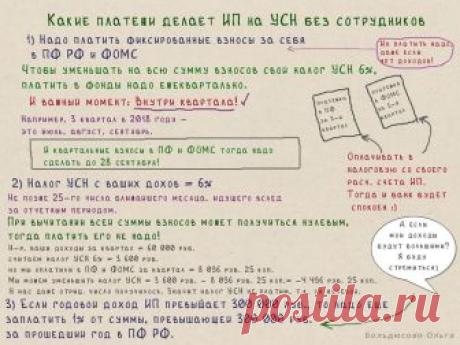 Какие платежи делает ИП на УСН без сотрудников
1) Надо платить фиксированные взносы за себя
в ПФ РФ и ФОМС
Их платить надо,
даже если
нет доходов!
Чтобы уменьшать на всю сумму взносов свой налог УСН 6%,
платить в фонды надо ежеквартально.
И важный момент: Внутри квартала!
Например, 3 квартал в 2018 году -
это июль, август, сентябрь.
И квартальные взносы в ПФ и ФОМС тогда надо
сделать до 28 сентября!
платежка
в ПФ
за 3-й
квартал
платежка
в ФОМС
за 3-й
квартал
Оплачивать в
налоговую со своего
расч. счета ИП.
Тогда и банк будет
спокоен :)
2) Налог УСН с ваших доходов = 6%
Не позже 25-го числа ближайшего месяца, идущего вслед
за отчетным периодом.
При вычитании всей суммы взносов может получиться нулевым,
тогда платить его не надо!
Н-р, ваши доходы за квартал = 60 000 руб.
считаем налог УСН 6% = 3 600 руб.
но мы оплатили в ПФ и ФОМС за квартал = 8 096 руб. 25 коп.
Мы можем уменьшить налог УСН = 3 600 руб. - 8 096 руб. 25 коп. = -4 496 руб. 25 коп.
А если
мои доходы
будут большими?
Я буду
стремиться!
3) Если годовой доход ИП превышает 300 000 руб., то надо еще
заплатить 1% от суммы, превышающей 300 000 руб.
за прошедший год в ПФ РФ.
postila.ru
Больдюсова Ольга